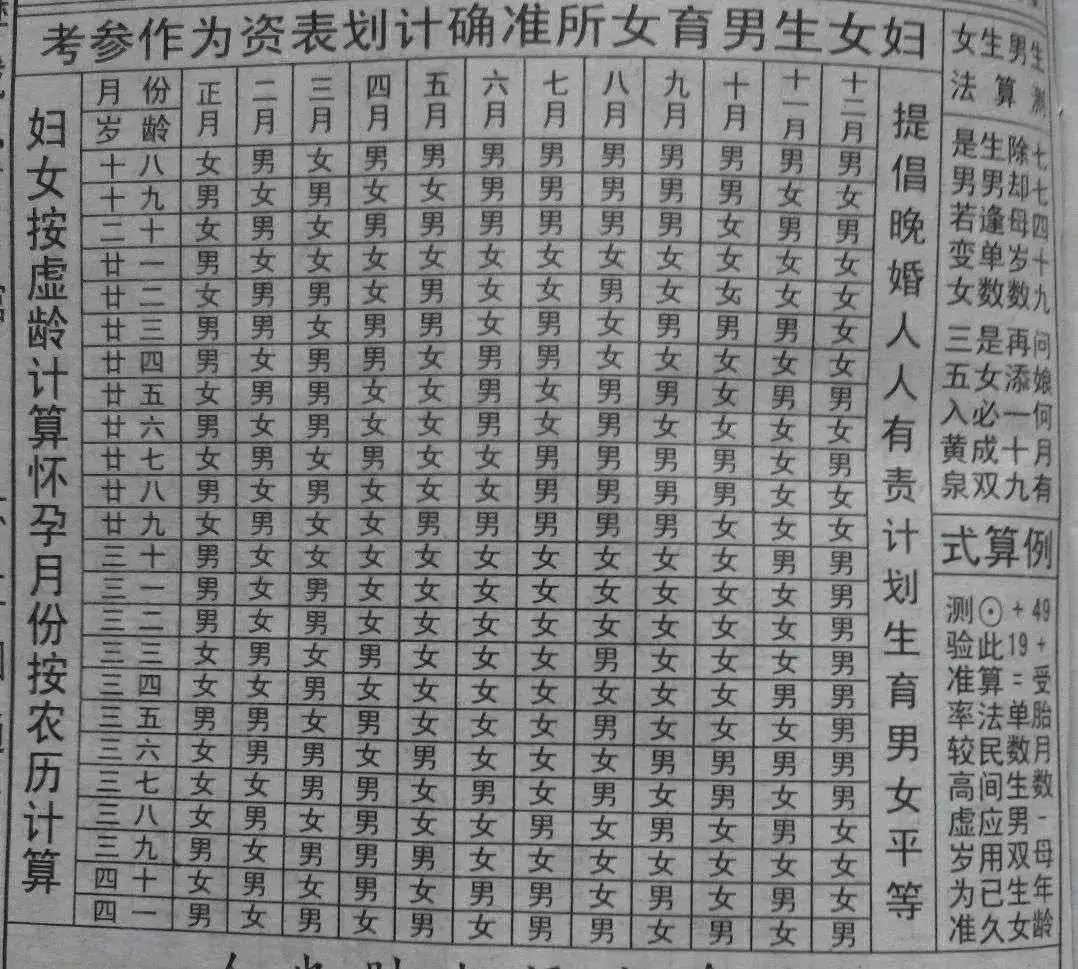 妇女生男育女所准确计划表资为作参考
妇女按虚龄计算怀孕月份按农历计算
月份 正月 二月 三月 四月 五月 六月 七月 八月 九月 十月 十一月 十二月
岁龄
十八 女 男 女 男 男 男 男 男 男 男 男 男
十九 男 女 男 女 女 男 男 男 男 男 女 女
二十 女 男 女 男 男 男 男 男 男 女 男 男
廿一 男 女 女 女 女 女 女 女 女 女 女 女
廿二 女 男 男 女 男 女 女 男 女 女 女 女
廿三 男 男 女 男 男 女 男 女 男 男 男 女
廿四 男 女 男 男 女 男 男 女 女 女 女 女
廿五 女 男 男 女 女 男 女 男 男 女 男 男
廿六 男 女 男 女 女 男 女 男 女 女 女 女
廿七 女 男 女 男 女 女 男 男 男 男 女 男
廿八 男 女 男 女 女 女 男 男 男 男 女 女
廿九 女 男 女 女 男 男 男 男 男 女 女 女
三十 男 女 女 女 女 女 女 女 女 女 男 男
三一 男 女 男 女 女 女 女 女 女 女 女 男
三二 男 女 男 女 女 女 女 女 女 女 女 男
三三 女 男 女 男 女 女 女 男 女 女 女 男
三四 女 女 男 女 女 女 女 女 女 女 男 男
三五 男 男 女 男 女 女 女 男 女 女 男 男
三六 女 男 男 女 男 女 女 女 男 男 男 男
三七 女 女 男 男 女 男 女 男 女 男 女 男
三八 女 男 女 男 女 女 男 女 男 女 男 女
三九 男 女 男 男 男 女 女 男 女 女 女 女
四十 女 男 女 男 女 男 男 女 男 女 男 女
四一 男 女 男 女 男 女 男 男 女 男 女 男
提倡晚婚人人有责计划生育男女平等
生男生女
测算法
七七四十九 问娘何月有
除却母岁数 再添一十九
生男逢单数 是女必成双
是男若变女 三五入黄泉
例算式
49+受胎月数-母年龄
+19=单数生男双生女
⊙此算法民间应用已久
测验准率较高虚岁为准